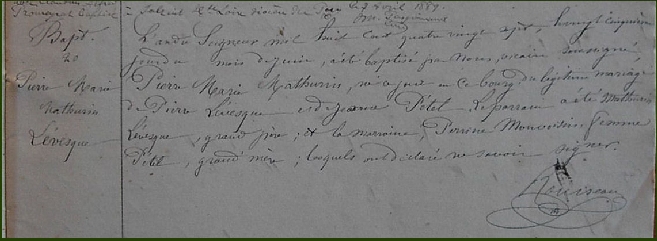 Baptiste à
Loire diocèse de le 9 avril 1889.
Bapt.
20
Pierre Marie
Mathurin
Lévesque
L'an du Seigneur mil huit cent quatre vingt sept, le vingt cinquième
jour du mois de Juin, a été baptisé par Nous, vicaire soussigné,
Pierre Marie Mathurin, né à jour en ce bourg du légitime mariage
de Pierre Lévesque et de Jeanne Pétel. Le parrain a été Mathurin
Lévesque, grand père ; et la marraine, Perrine femme
Pétel, grand'mère ; lesquels ont déclaré ne savoir signer.